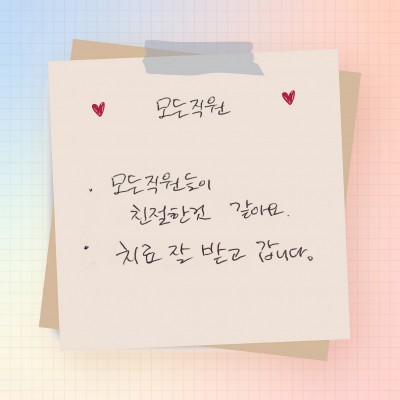 모든직원
· 모든직원들이
친절한것 같아요.
· 치료 잘 받고 갑니다.